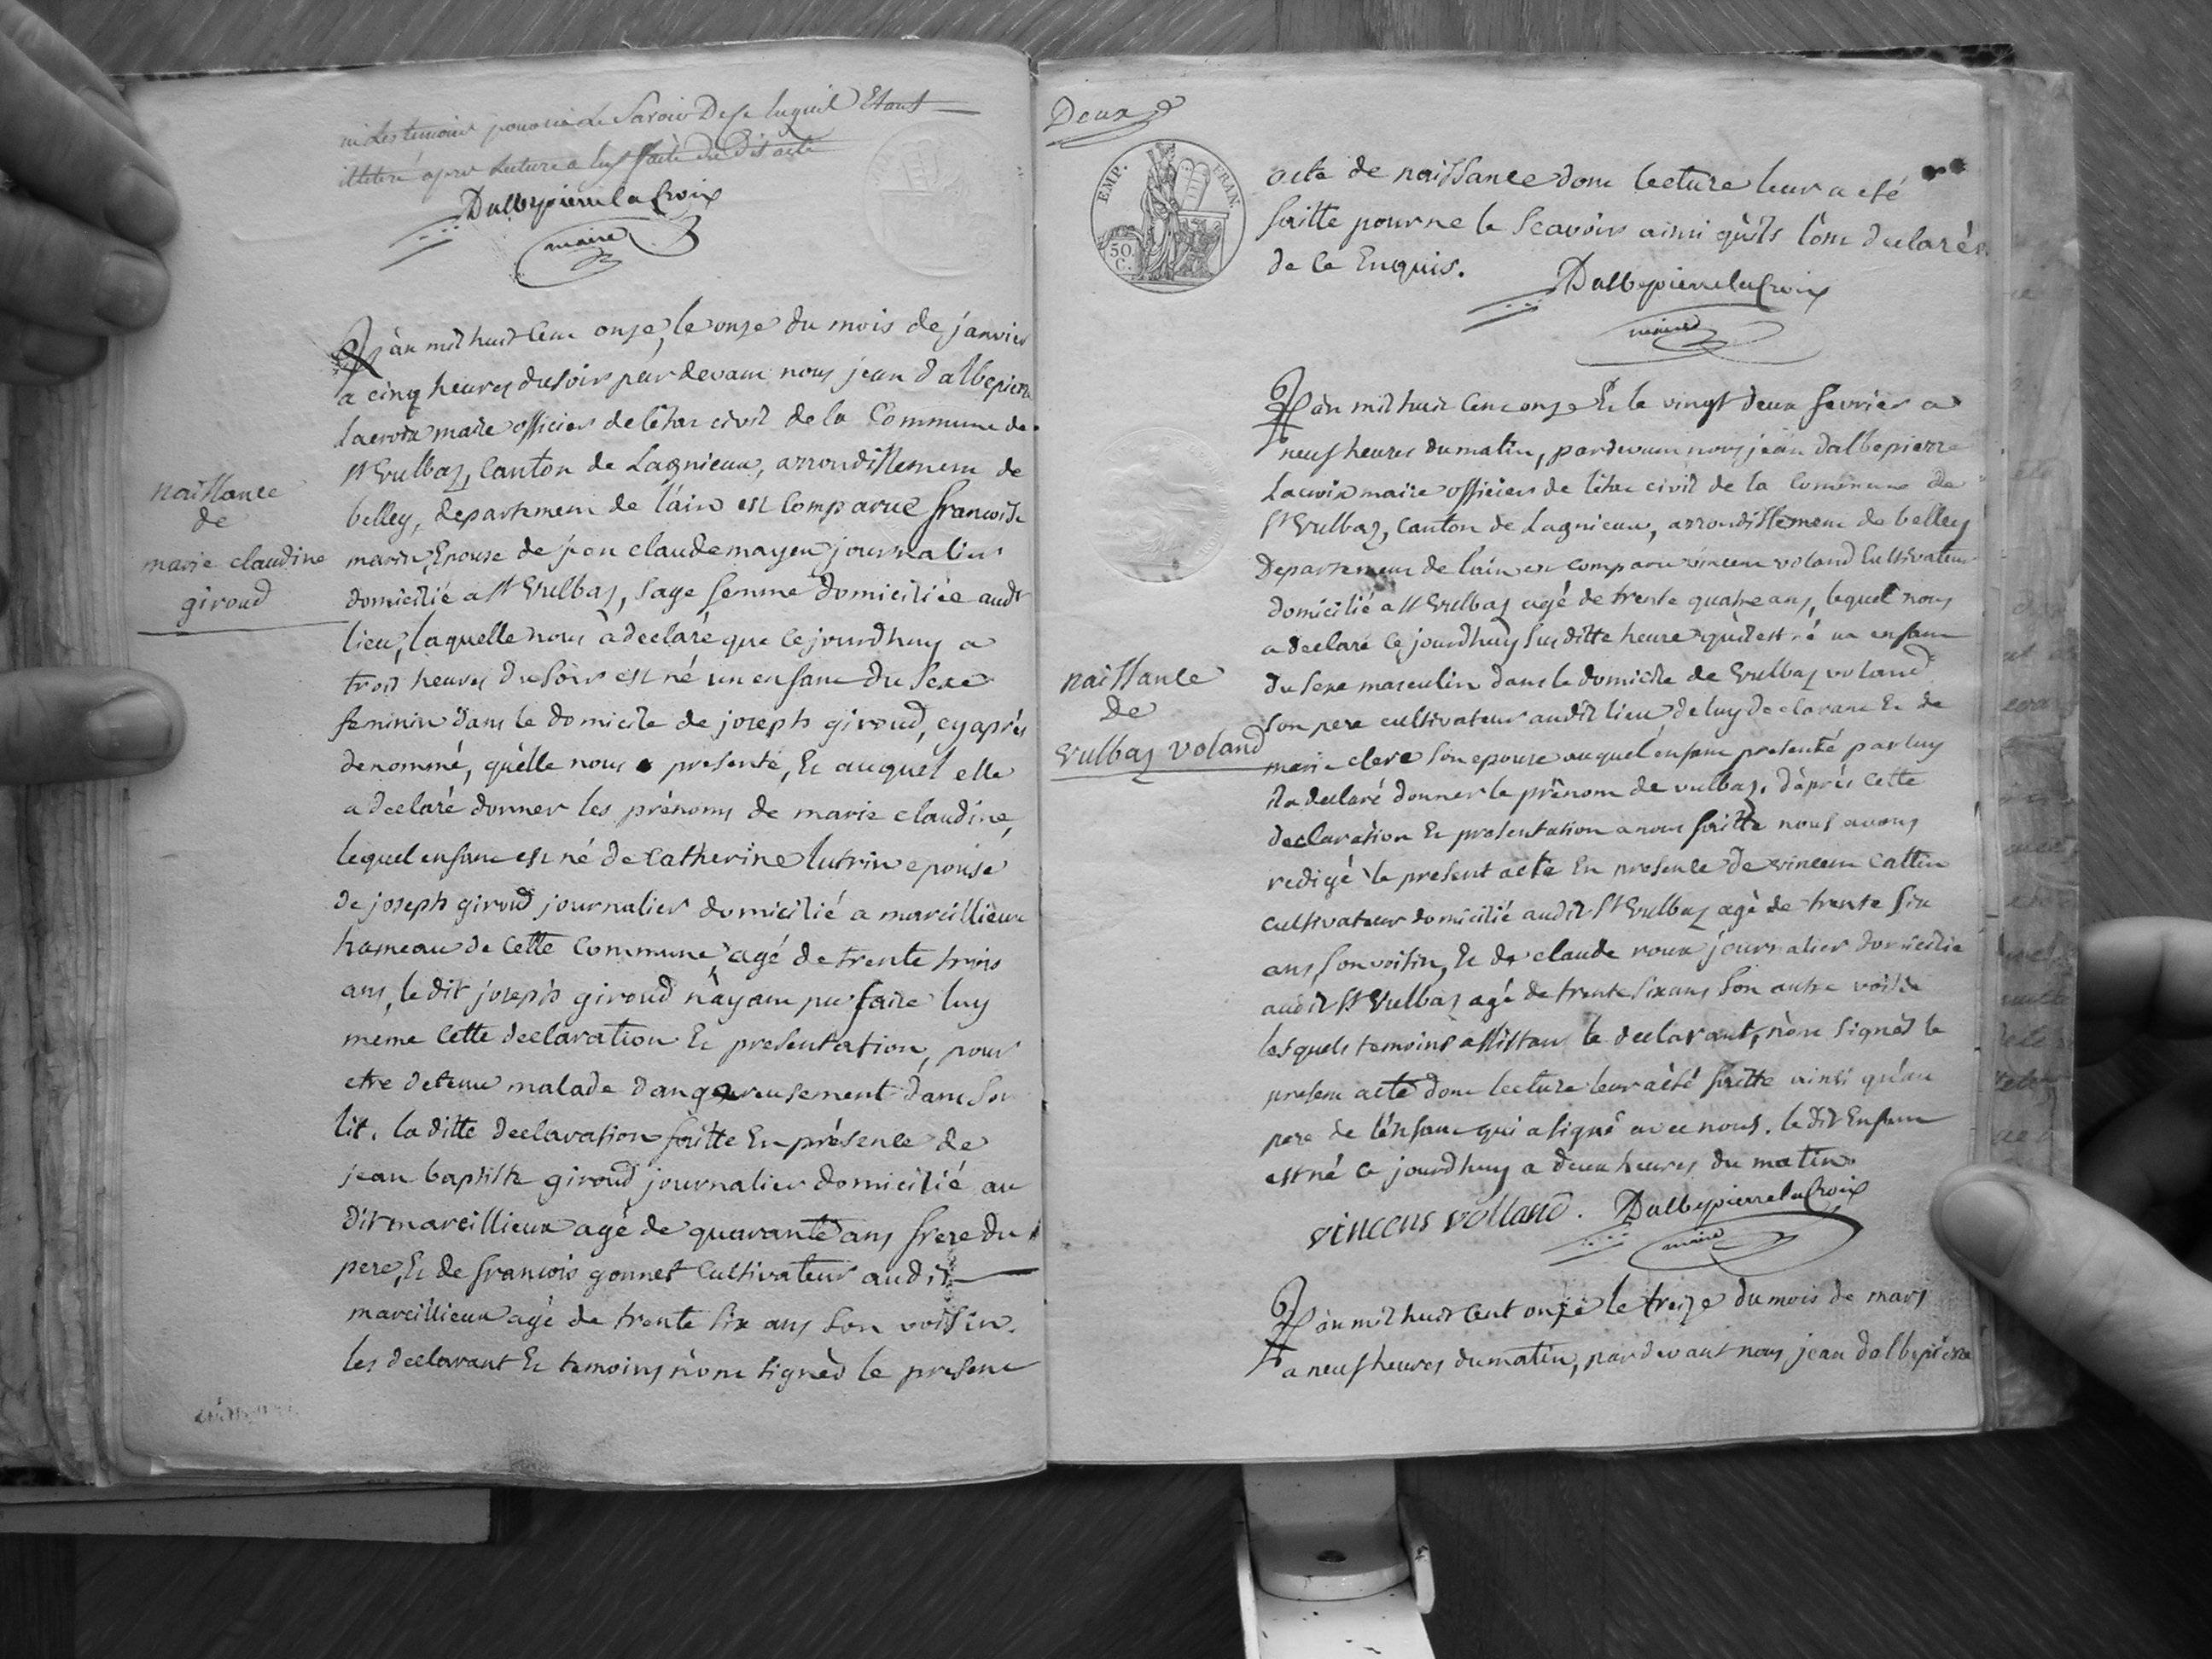 ni les temoins pour ne le Savoir De ce Enquit Etant
illiteré apres Lecture a luy faite du Dit acte
Dalbepierre la Croix
maire
L'an mil huit Cent onze, le onze du mois de janvier
a cinq heures du soir par devant nous jean dalbepierre
Lacroix maire officier de l'état civil de la Commune de
St Vulbaz, Canton de Lagnieux, arrondissement de
belley, departement de l'ain est Comparue francoise
marin Epouse de jean claude mayeu journalier
domicilié a St Vulbaz, sage femme domiciliée audit
lieu, laquelle nous à declaré que ce jourdhuy a
trois heures du soir est né un enfant du sexe
feminin dans le domicile de joseph giroud, cy après
denommé, quèlle nous presente, Et auquel elle
a declaré donner les prénoms de marie claudine,
lequel enfant est né de Catherine lutrin epouse
de joseph giroud journalier domicilié a marcillieux
hameau de Cette Commune agé de trente trois
ans, le dit joseph giroud n'ayant pu faire luy
meme Cette declaration Et presentation, pour
etre detenu malade dangereusement dans son
lit. la ditte declaration faitte En présence de
jean baptiste giroud journalier domicilié au
dit marcillieux agé de quarante ans frere du
pere, Et de francois gonnet Cultivateur audit
marcillieux agé de trente six ans son voisin.
les declarant Et temoins n'ont signés le present
naissance
de
marie claudine
giroud
Deux
EMP. FRAN.
50 C.
acte de naissance dont lecture leur a eté
faitte pour ne le scavoir ainsi qu'ils l'ont declarés
de ce Enquis.
Dalbepierre la Croix
maire
L'an mil huit Cent onze Et le vingt deux fevrier a
neuf heures du matin, pardevant nous jean dalbepierre
Lacroix maire officier de l'état civil de la Commune de
St Vulbaz, Canton de Lagnieux, arrondissement de belley
Departement de l'ain est comparu vincent voland Cultivateur
domicilié a St Vulbaz agé de trente quatre ans, lequel nous
a declaré ce jourdhuy sus ditte heure qu'il est né un enfant
du sexe masculin dans le domicile de Vulbaz voland
son pere cultivateur audit lieu, de luy declarant Et de
marie clere son epouse auquel enfant presenté par luy
il a declaré donner le prénom de vulbaz. d'après Cette
declaration Et presentation a nous faitte nous avons
redigé le present acte En presence de vincent Cattin
cultivateur domicilié audit St Vulbaz agé de trente six
ans, son voisin, Et de claude roux journalier domicilié
audit St Vulbaz agé de trente six ans son autre voisin
lesquels temoins assistant le declarant, n'ont signés le
present acte dont lecture leur a èté faitte ainsi qu'au
pere de l'enfant qui a signé avec nous. le dit Enfant
est né ce jourdhuy a deux heures du matin.
vincens volland. Dalbepierre la Croix
maire
naissance
de
Vulbaz voland
L'an mil huit Cent onze le treize du mois de mars
a neuf heures du matin, pardevant nous jean dalbepierre